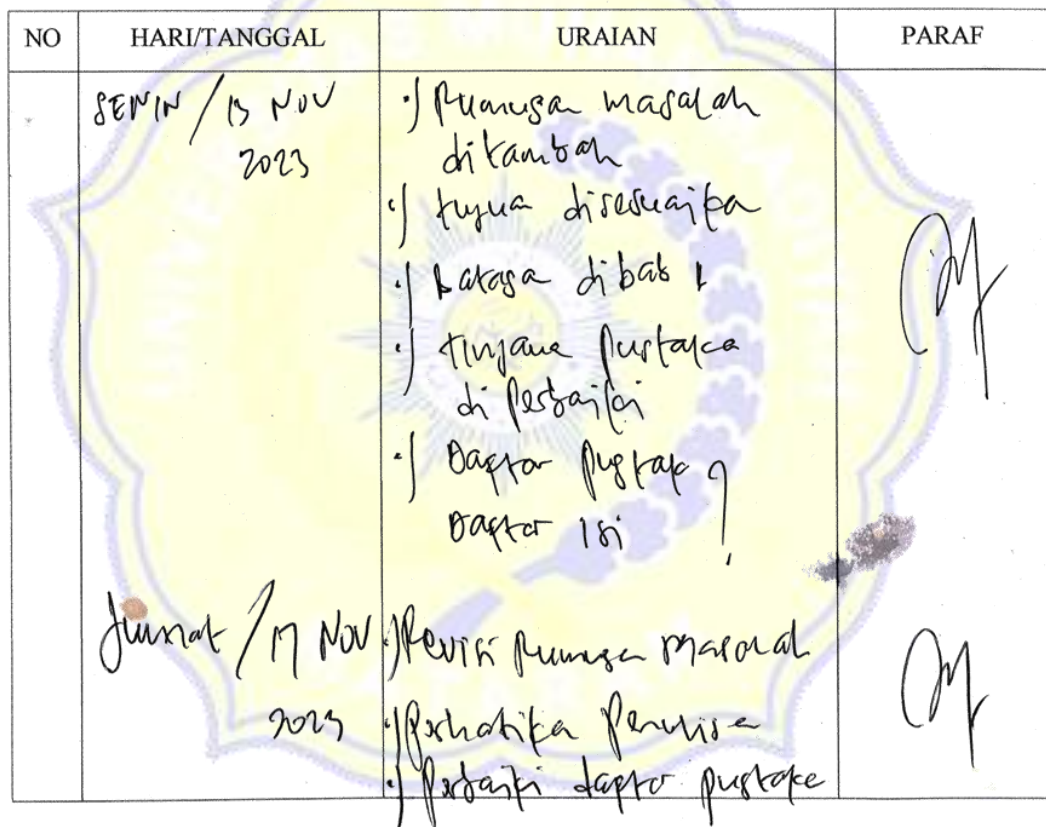 NO HARI/TANGGAL URAIAN PARAF
SENIN / 13 NOV ·) Rumusan masalah
2023 ditambah
·) tujuan disesuaika
·) Batasa dibab 1
·) tinjaua pustaka
di perbaiki
·) Daftar pustak ?
Daftar isi
Jumat / 17 NOV ·) Revisi Rumusa masalah
2023 ·) Perhatika Penulisa
·) Perbaiki daftar pustaka